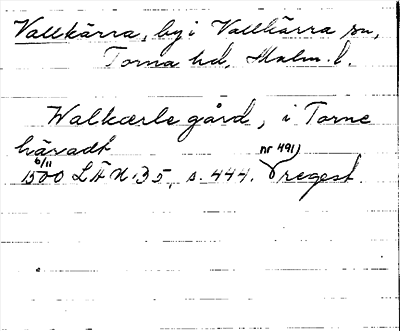 Vallkärra, by i Vallkärra sn,
Torna hd, Malm. l.
Walkærle gård, i Torne
häradt
6/11 nr 491)
1500 LÄU 135, s. 444. regest.